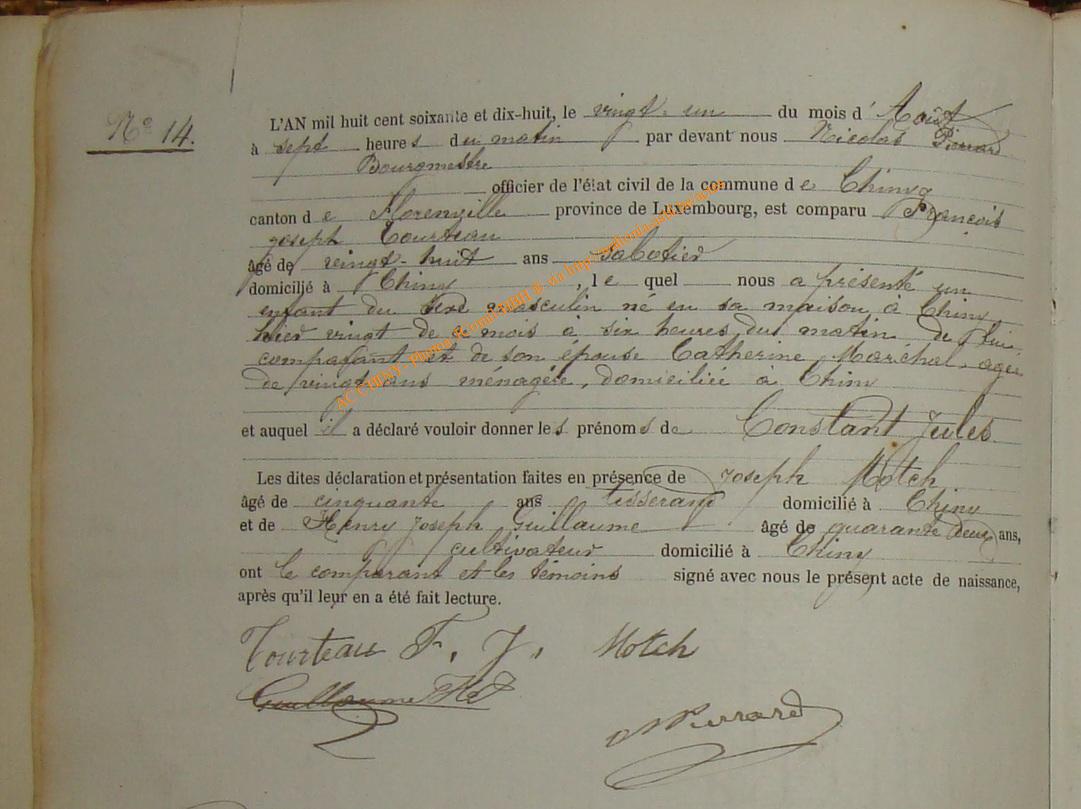 No 14.
L'AN mil huit cent soixante et dix-huit, le vingt-un du mois d'Août
à sept heures du matin par devant nous Nicolas Pierrard
Bourgmestre
officier de l'état civil de la commune de Chiny
canton de Florenville province de Luxembourg, est comparu François
joseph Tourteau
âgé de vingt-huit ans sabotier
domicilié à Chiny, le quel nous a présenté un
enfant du sexe masculin né en sa maison, à Chiny,
hier vingt de ce mois a six heures du matin de lui
comparant et de son épouse Catherine Maréchal, agée
de vingt ans ménagère, domiciliée à Chiny
et auquel il a déclaré vouloir donner les prénoms de Constant Jules
Les dites déclaration et présentation faites en présence de Joseph Motch
âgé de cinquante ans tisserand domicilié à Chiny
et de Henry Joseph Guillaume âgé de quarante deux ans,
cultivateur domicilié à Chiny
ont le comparant et les témoins signé avec nous le présent acte de naissance,
après qu'il leur en a été fait lecture.
Tourteau F. J. Motch
Guillaume
NPierrard